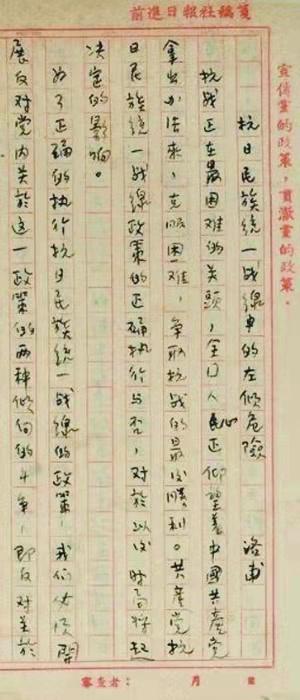 前進日報社稿箋
宣傳黨的政策，貫澈黨的政策。
抗日民族统一战線中的左倾危險　洛甫
抗战正在最困难的关頭，全国人民正仰望着中國共產党
拿出办法来，克服困难，争取抗战的最後勝利。共產党抗
日民族统一战線政策的正确执行与否，对於以後时局将起
决定的影响。
为了正确的执行抗日民族统一战線的政策，我们必须開
展反对党内关於这一政策的两种倾向的斗争，即反对关於
審查者：　月　日